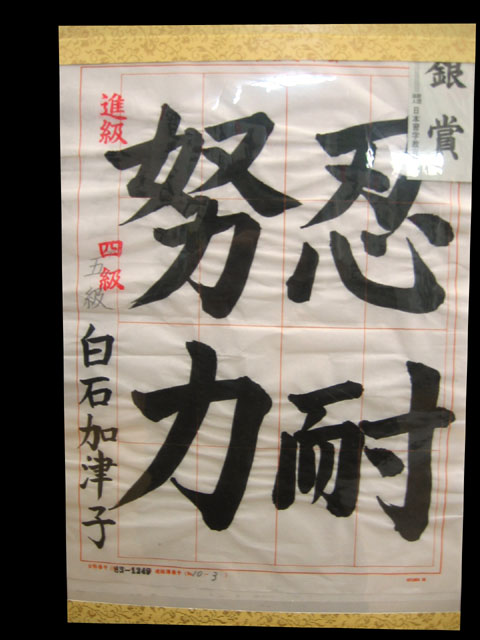 銀賞
日本習字教
忍耐
努力
進級
四級
五級
白石加津子
63-1349
10-3